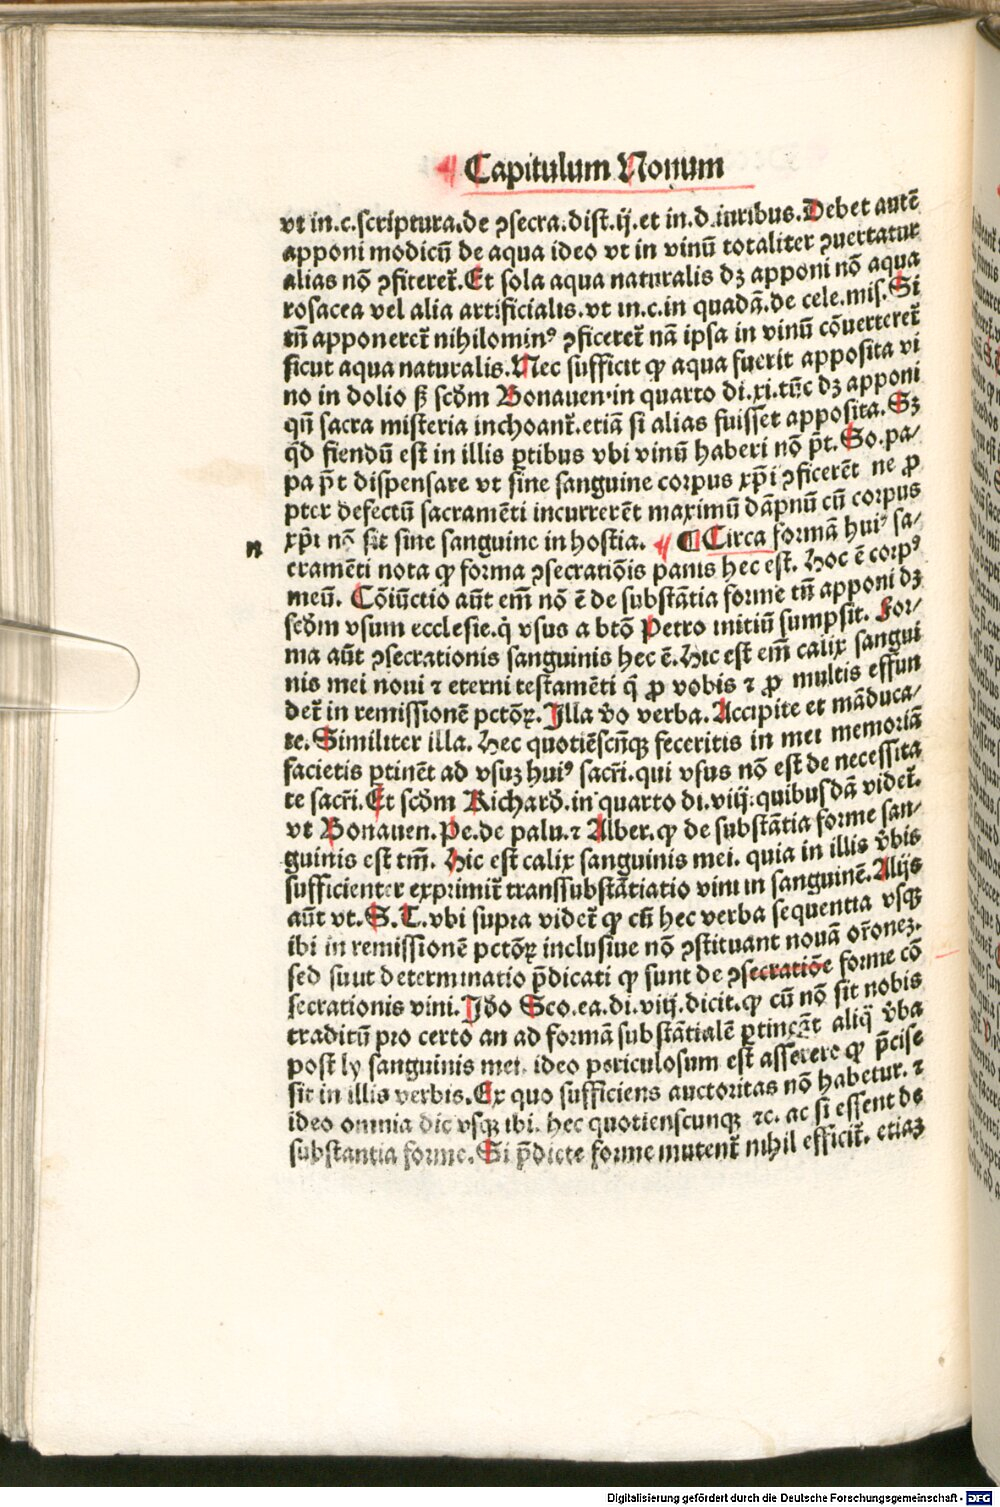 ¶ Capitulum Nonum
vt in.c.scriptura.de ꝯsecra.dist.ij.et in.d.iuribus.Debet autē
apponi modicū de aqua ideo vt in vinū totaliter ꝯuertatur
alias nō ꝯficeret᷑.Et sola aqua naturalis dꝫ apponi nō aqua
rosacea vel alia artificialis.vt in.c.in quadā.de cele.mis.Si
tn̄ apponeret᷑ nihilominꝰ ꝯficeret᷑ nā ipsa in vinū cōuerteret᷑
sicut aqua naturalis.Nec sufficit ꝙ aqua fuerit apposita vi
no in dolio ꝭ scḋm Bonauen.in quarto di.xi.tūc dꝫ apponi
qn̄ sacra misteria inchoant᷑.etiā si alias fuisset apposita.Sꝫ
qd̄ fiendū est in illis ꝑtibus vbi vinū haberi nō pt̄.So.pa⸗
pa pt̄ dispensare vt sine sanguine corpus xp̄i ꝯficerēt ne ꝓ
pter defectū sacramēti incurrerēt maximū dāpnū cū corpus
n
xp̄i nō sit sine sanguine in hostia. ¶ Circa formā huiꝰ sa⸗
cramēti nota ꝙ forma ꝯsecratiōis panis hec est. Hoc ē corpꝰ
meū. Cōiūctio aūt em̄ nō ē de substātia forme tn̄ apponi dꝫ
scḋm vsum ecclesie.q̇ vsus a btō Petro initiū sumpsit. For⸗
ma aūt ꝯsecrationis sanguinis hec ē.Hic est em̄ calix sangui
nis mei noui ⁊ eterni testamēti q̄ ꝓ vobis ⁊ ꝓ multis effun
det᷑ in remissionē pctōꝝ.Illa v̄o verba.Accipite et māduca⸗
te.Similiter illa. Hec quotiēscūqꝫ feceritis in mei memoriā
facietis ꝑtinēt ad vsuꝫ huiꝰ sacr̄i.qui vsus nō est de necessita
te sacr̄i.Et scḋm Richard̄.in quarto di.viij.quibusdā videt᷑.
vt Bonauen.Pe.de palu.⁊ Alber.ꝙ de substātia forme san⸗
guinis est tm̄. Hic est calix sanguinis mei. quia in illis v̄bis
sufficienter exprimit᷑ transsubstātiatio vini in sanguinē.Alijs
aūt vt.S.T.vbi supra videt᷑ ꝙ cū hec verba sequentia vsqꝫ
ibi in remissionē pctōꝝ inclusiue nō ꝯstituant nouā or̄onez.
sed suut determinatio p̄dicati ꝙ sunt de ꝯsecratiōe forme cō
secrationis vini.Iḋo Sco.ea.di.viij.dicit.ꝙ cū nō sit nobis
traditū pro certo an ad formā substātialē ꝑtineāt aliq̄ v̄ba
post ly sanguinis mei. ideo periculosum est asserere ꝙ p̄cise
sit in illis verbis.Ex quo sufficiens auctoritas nō habetur. ⁊
ideo omnia dic vsqꝫ ibi. hec quotienscunqꝫ ⁊c. ac si essent de
substantia forme.Si p̄dicte forme mutent᷑ nihil efficit᷑. etiaꝫ
Digitalisierung gefördert durch die Deutsche Forschungsgemeinschaft - DFG